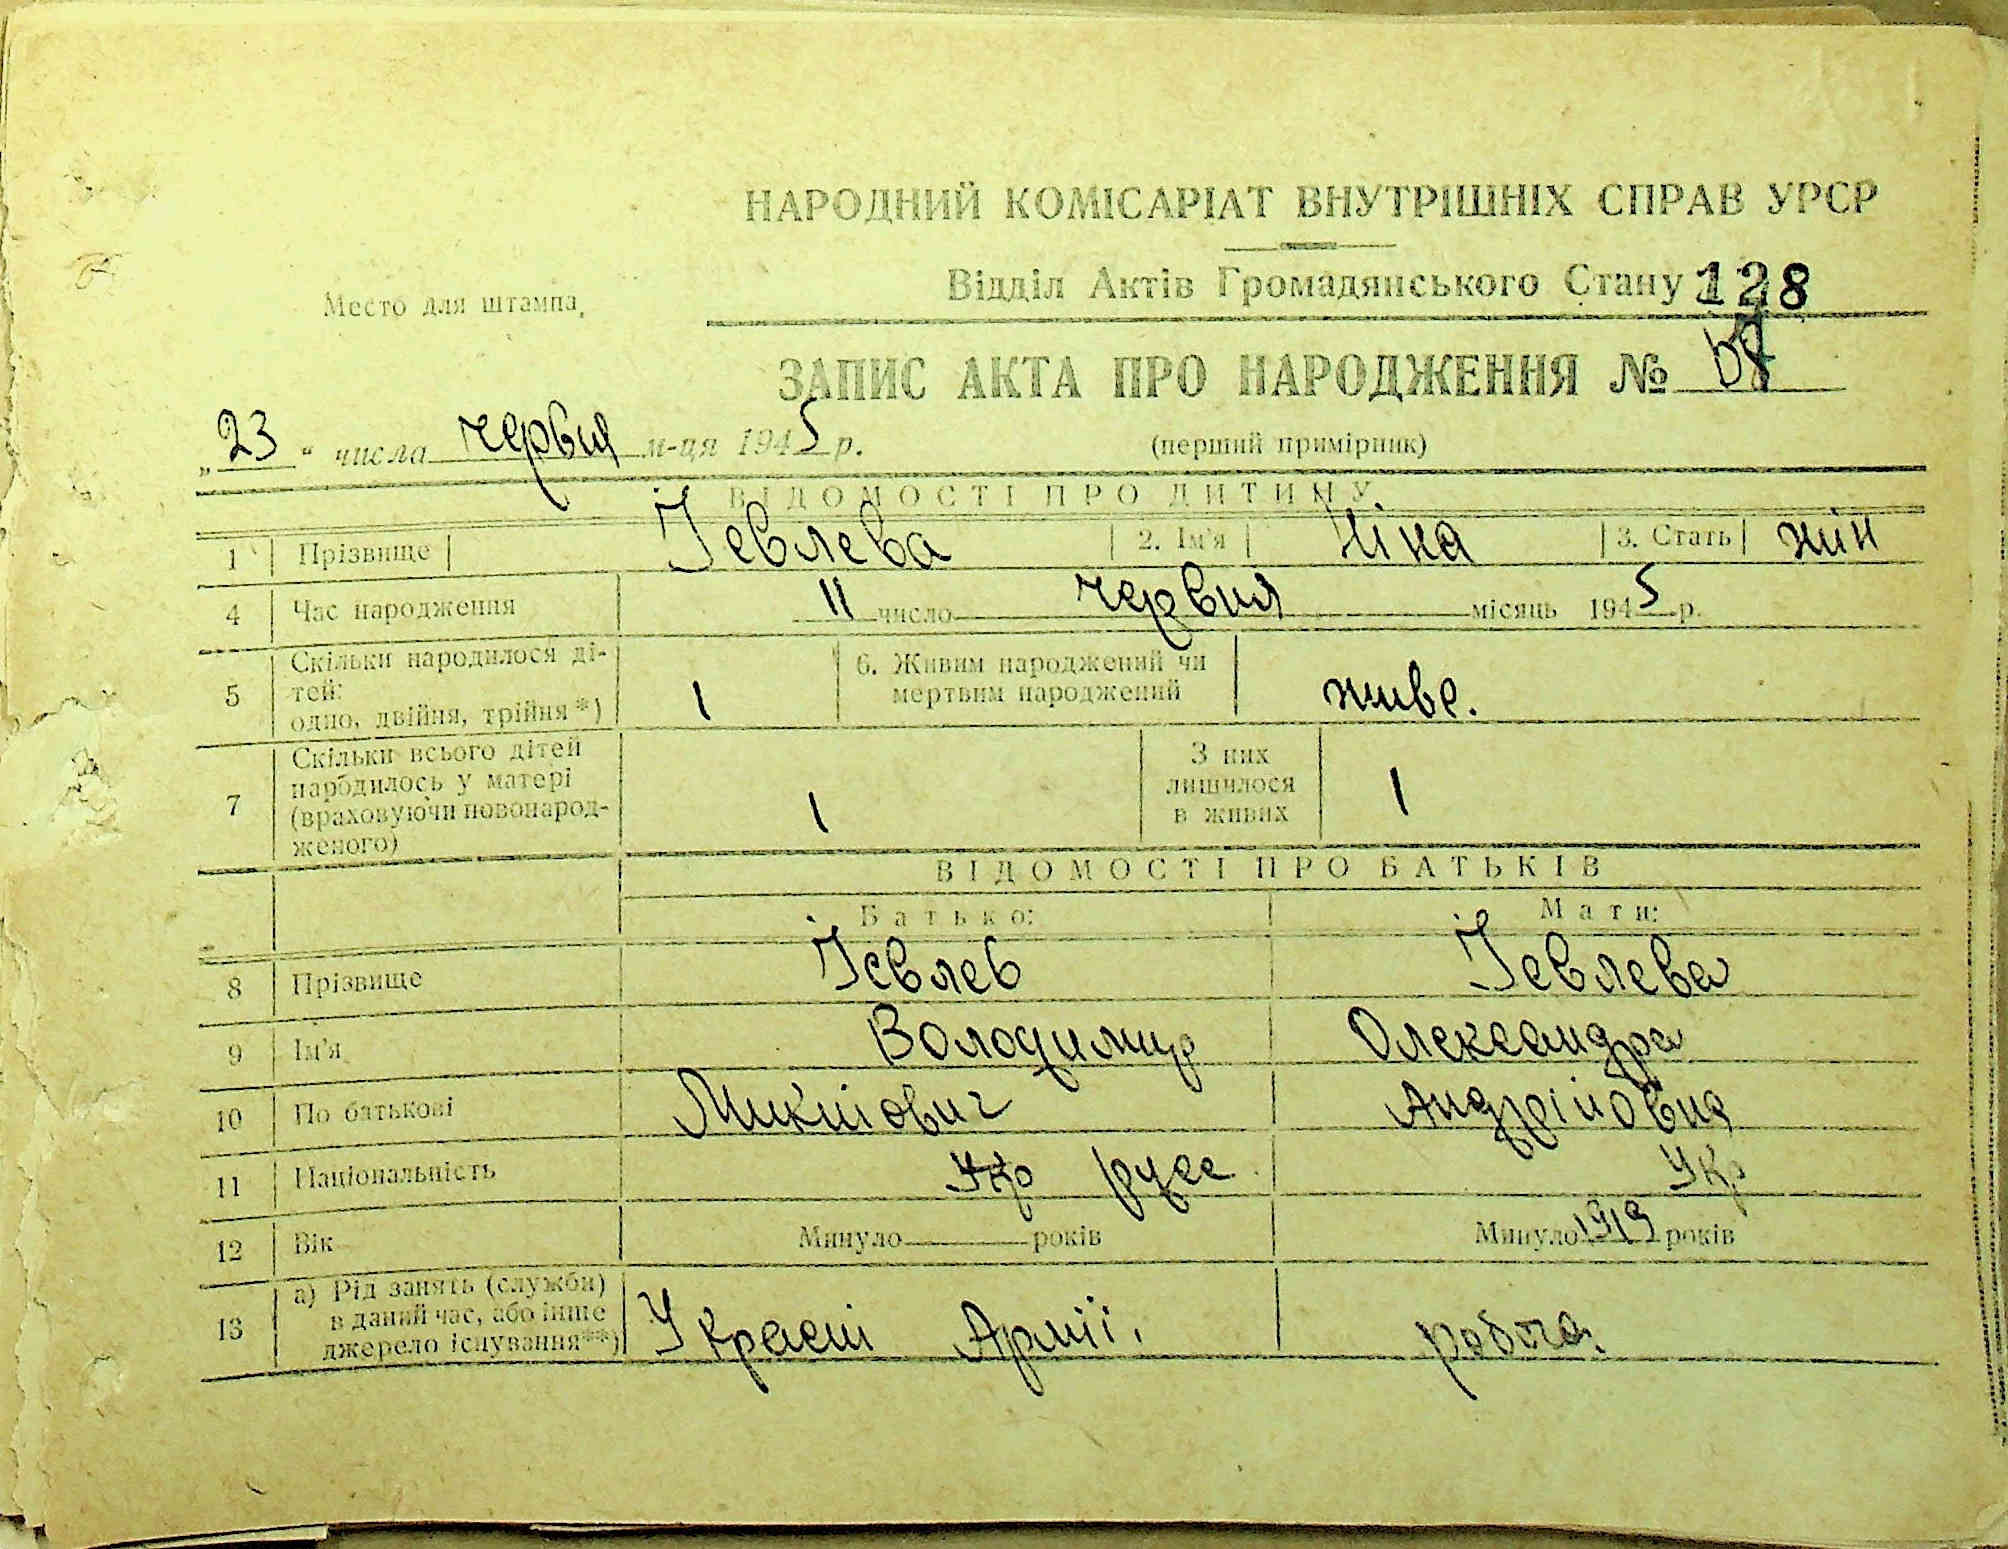 НАРОДНИЙ КОМІСАРІАТ ВНУТРІШНІХ СПРАВ УРСР
Место для штампа,
Відділ Актів Громадянського Стану 128
ЗАПИС АКТА ПРО НАРОДЖЕННЯ №
„23" числа червня м-ця 1945 р.
(перший примірник)
ВІДОМОСТІ ПРО ДИТИНУ
1 Прізвище Ієвлева 2. Ім'я Ніна 3. Стать жін
4 Час народження 11 число червня місяць 1945 р.
5 Скільки народилося ді-
тей:
одно, двійня, трійня*) 1
6. Живим народжений чи
мертвим народжений живе.
7 Скільки всього дітей
народилось у матері
(враховуючи новонарод-
женого) 1
З них
лишилося
в живих 1
ВІДОМОСТІ ПРО БАТЬКІВ
Батько: Мати:
8 Прізвище Ієвлев Ієвлева
9 Ім'я Володимир Олександра
10 По батькові Микитович Андріївна
11 Національність Укр русс Укр
12 Вік Минуло років Минуло 1919 років
13 а) Рід занять (служби)
в даний час, або інше
джерело існування**)
У Красні Армії.